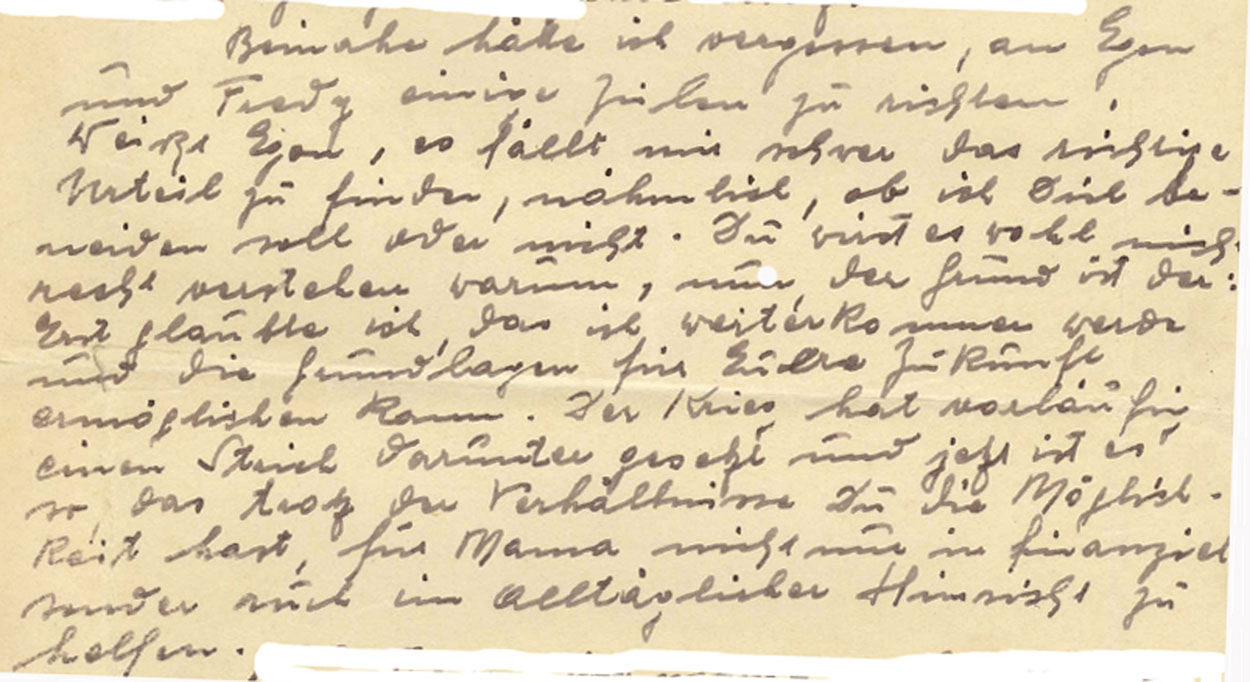 Beinahe hätte ich vergessen, an Egon
und Fredy einige Zeilen zu richten.
Weißt Egon, es fällt mir schwer das richtige
Urteil zu finden, nähmlich, ob ich Dich be-
neiden soll oder nicht. Du wirst es wohl nicht
recht verstehen warum, nun, der Grund ist der:
Erst glaubte ich, das ich weiterkommen werde
und die Grundlagen für Eure Zukunft
ermöglichen kann. Der Krieg hat vorläufig
einen Strich darunter gesetzt und jetzt ist es
so, das trotz der Verhältnisse Du die Möglich-
keit hast, für Mama nicht nur in finanziel
sonder auch im alltäglicher Hinsicht zu
helfen.